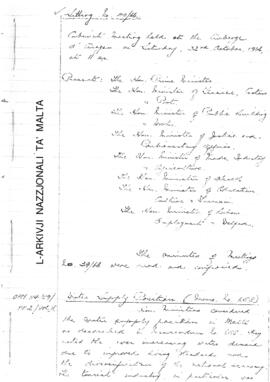 Cabinet Meeting held at the Auberge
d'Aragon on Saturday, 22nd October, 1966,
at
Present: The Hon. Prime Minister
The Hon. Minister of Finance, Customs
& Port
The Hon. Minister of Public Building
& Works
The Hon. Minister of Justice and
Parliamentary Affairs
The Hon. Minister of Trade, Industry
& Agriculture
The Hon. Minister of Health
The Hon. Minister of Education
Culture & Tourism
The Hon. Minister of Labour
Employment & Welfare
The minutes of Meetings
No 29/66 were read and confirmed.
Water Supply Position (Memo. No
Hon. Ministers considered
the water supply position in Malta
as described in Memorandum No
noted the ever increasing water demand
due to improved living standards and
the diversification of the national economy
the tourist industry in particular was
L-ARKIVJI NAZZJONALI TA' MALTA